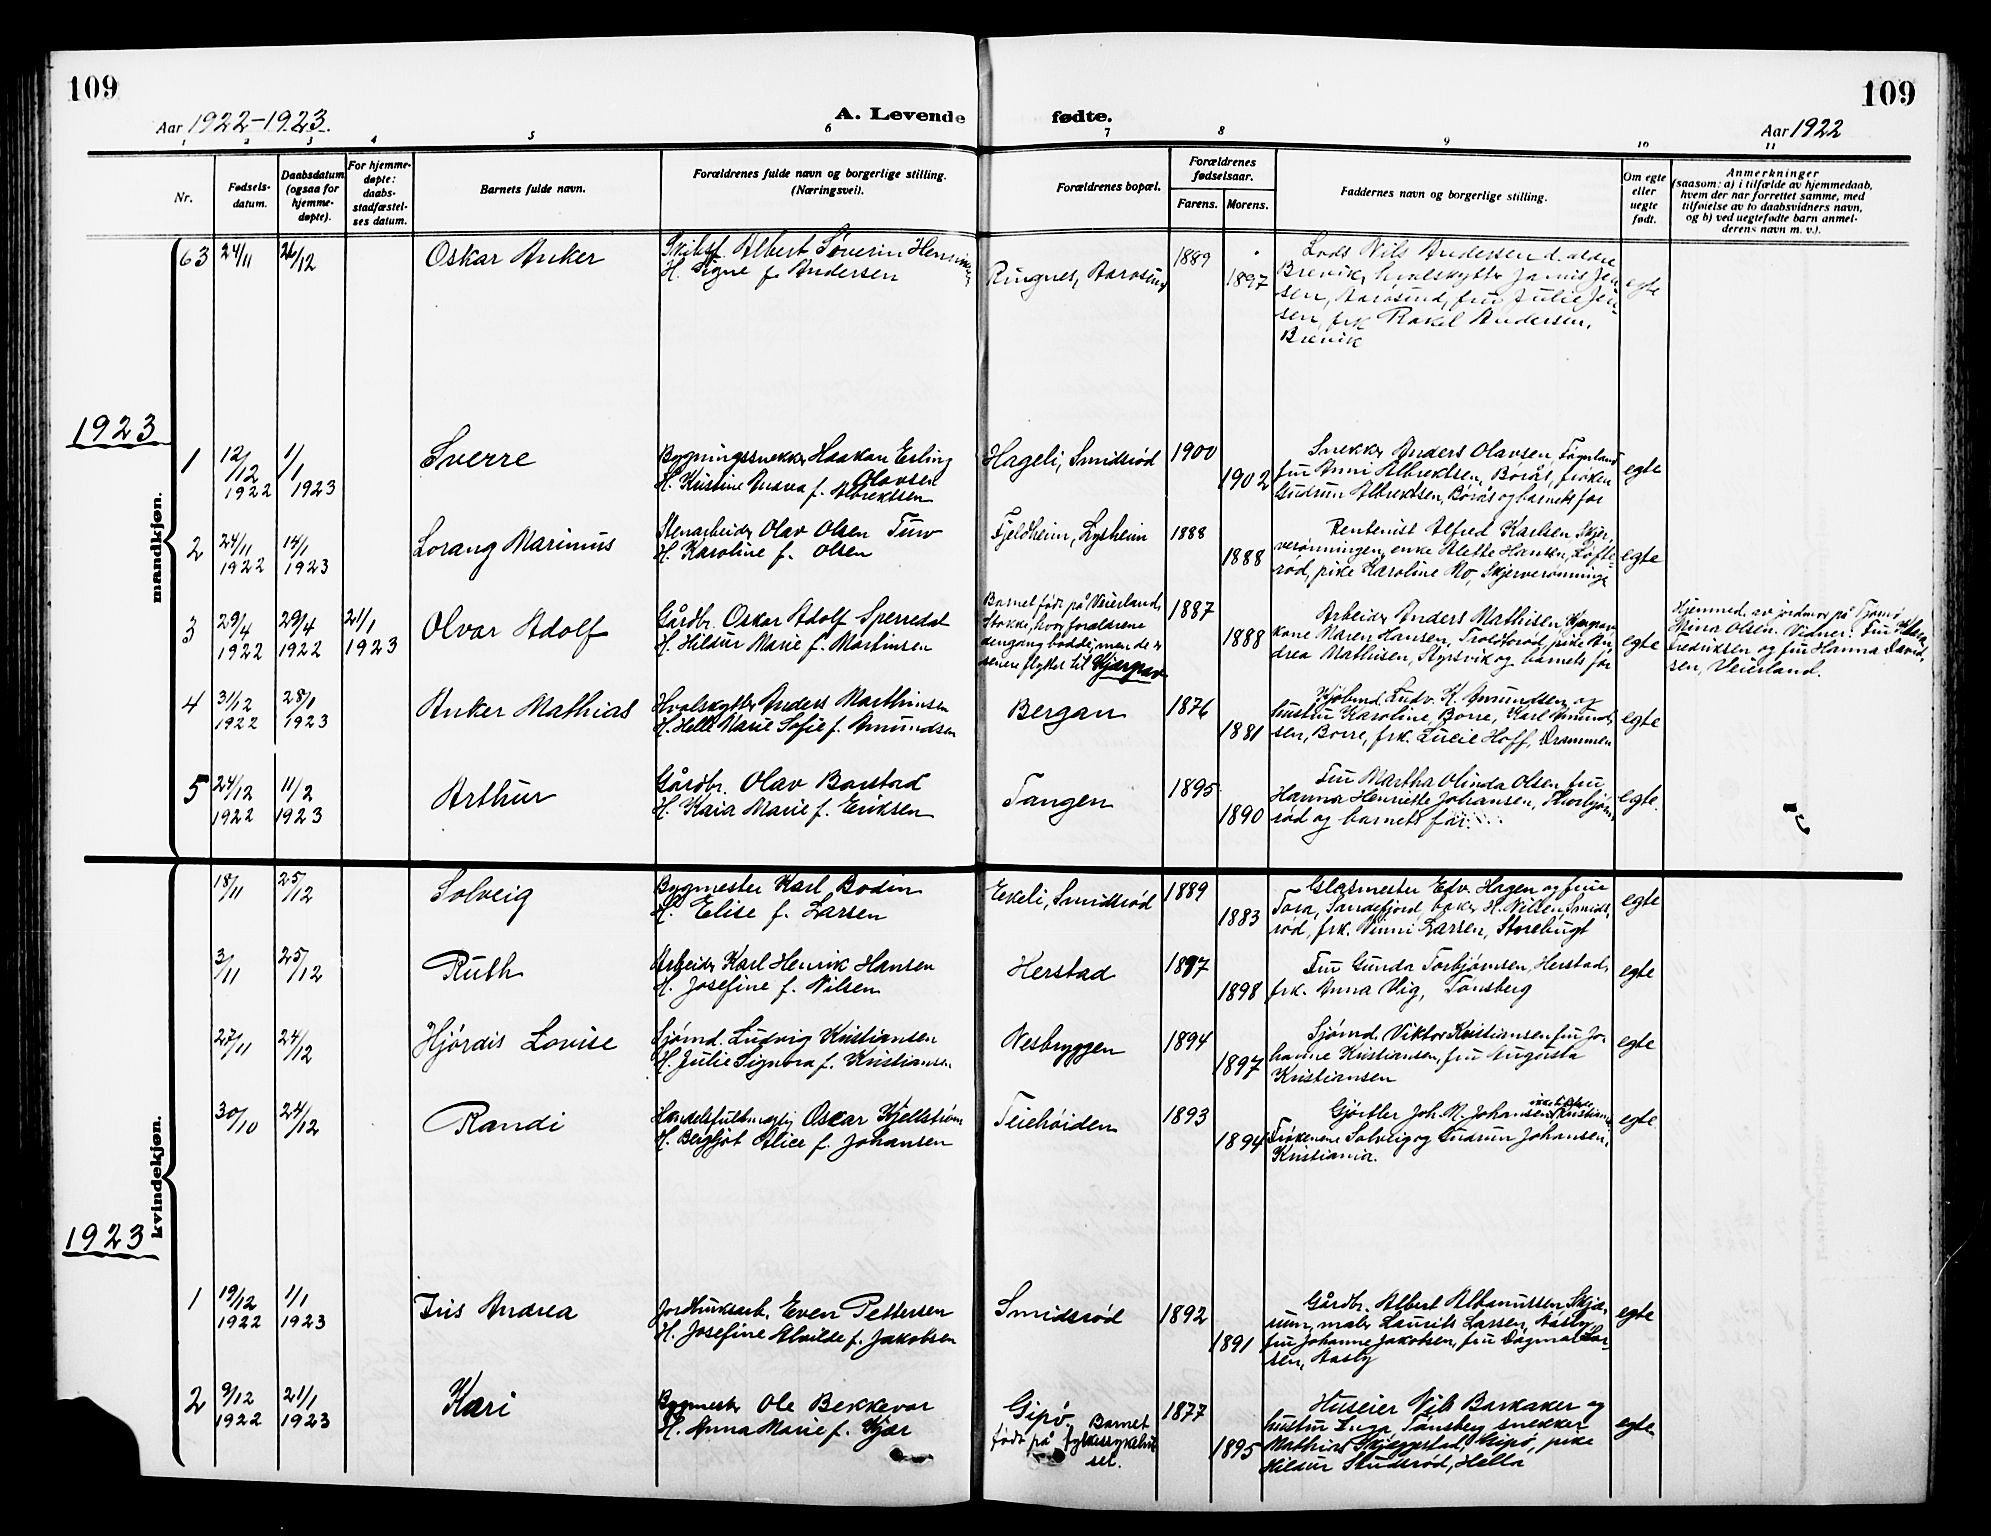 109
109
Aar 1922-1923.
A. Levende fødte.
Aar 1922
1 2 3 4 5 6 7 8 9 10 11
Nr.
Fødsels-
datum.
Daabsdatum
(ogsaa for
hjemme-
døpte).
For hjemme-
døpte:
daabs-
stadfæstel-
ses datum.
Barnets fulde navn.
Forældrenes fulde navn og borgerlige stilling.
(Næringsvei).
Forældrenes bopæl.
Forældrenes
fødselsaar.
Farens. Morens.
Faddernes navn og borgerlige stilling.
Om egte
eller
uegte
født.
Anmerkninger
(saasom: a) i tilfælde av hjemmedaab,
hvem der har forrettet samme, med
tilføielse av to daabsvidners navn,
og b) ved uegtefødte barn anmel-
derens navn m. v.).
mandkjøn.
63 24/11 26/12 Oskar Anker
Skibsf. Albert Severin Henriksen
H. Signe f. Andersen
Ringnes, Aarøsund
1889 1897
Lods Nils Andersen d. ældre
Brevik, hvalskytter Jen-
sen, Aarøsund, fru Julie Jen-
sen, frk Rakel Andersen,
Brevik
egte
1923
1 12/12 1922 1/1 1923 Sverre
Bygningssnekker Haakon Erling
Olavsen
H. Kristine Marea f. Albrektsen
Hageli, Smidsrød
1900 1902
Snekker Anders Olavsen, Fagerland
fru Anni Albrektsen, Børås, frøken
Gudrun Albrektsen, Børås og barnets far
egte
2 24/11 1922 14/1 1923 Lorang Marinius
Stenarbeider Olav Olsen Turv
H. Karoline f. Olsen
Fjeldheim, Lysheim
1888 1888
Rentenist Alfred Karlsen Skjer-
verønningen, enke Alette Hansen, Løfts-
rød, pike Karoline Ro, Skjerverønninge
egte
3 29/4 1922 29/4 1922 21/1 1923 Olvar Adolf
Gårdbr. Oskar Adolf Sperredal
H. Hildur Marie f. Martinsen
Barnet født på Veierland,
Stokke, hvor forældrene
dengang bodde, men de er
senere flyttet til Kjærgaar
1887 1888
Arbeider Anders Mathisen,
kone Maren Hansen, Troldbørød, pike An-
drea Mathisen, Styrsvik og barnets far
egte
Hjemmed. av jordmor på Tjømø
Mina Olsen. Vidner: Fru
Fredriksen og fru Hanna David-
sen, Veierland.
4 31/12 1922 28/1 1923 Anker Mathias
Hvalskytter Anders Marthinsen
H. Helle Marie Sofie f. Amundsen
Bergan
1876 1881
Kjøbmd. Ludv. K. Amundsen og
hustru Karoline, Borre, Karl Amund-
sen, Borre, frk. Lucie Hoff, Drammen
egte
5 24/12 1922 11/2 1923 Arthur
Gårdbr. Olav Barstad
H. Kaia Marie f. Eriksen
Tangen
1895 1890
Fru Martha Olinda Olsen, fru
Hanna Henriette Johansen, Thorbjørns-
rød og barnets far.
egte.
kvindekjøn.
18/11 25/12 Solveig
Bygmester Karl Bodin
H. Elise f. Larsen
Ekeli, Smidsrød
1889 1883
Glasmester Edv. Hagen og frue
Tora, Sandefjord, H. Nilsen, Smids-
rød, frk. Vinni Larsen, Storebugt
egte
3/11 25/12 Ruth
Arbeider Karl Henrik Hansen
H. Josefine f. Nilsen
Herstad
1897 1898
Fru Gunda Torbjørnsen, Herstad,
frk. Anna Vig, Tønsberg
egte
27/11 24/12 Hjørdis Lovise
Sjømd. Ludvig Kristiansen
H. Julie Signora f. Kristiansen
Nesbryggen
1894 1897
Sjømd. Viktor Kristiansen, fru Jo-
hanne Kristiansen, fru Augusta
Kristiansen
egte
30/10 24/12 Randi
Handelsfuldmægtig Oscar Kjellstrøm
H. Bergljot Alice f. Johansen
Teiehøiden
1893 1894
Gjørtler Joh. N. Johansen, Kristiania
Frøknene Solveig og Gudrun Johansen,
Kristiania.
egte
1923
1 19/12 1922 1/1 1923 Iris Andrea
Jordbruksarb. Even Pettersen
H. Josefine Alvilde f. Jakobsen
Smidsrød
1892 1891
Gårdbr. Albert Albanussen, Skjæ-
sum, maler Laurits Larsen, Aasby,
fru Johanne Jakobsen, fru Dagmar Lar-
sen, Aasby
egte
2 9/12 1922 21/1 1923 Kari
Bygmester Ole Bekkevar
H. Anna Marie f. Kjær
Gipø. Barnet
født på fylkessykehu-
set.
1877 1895
Huseier Nils Barkaker og
hustru Inga, Tønsberg, snekker
Mathias Skjæggestad, Gipø, pike
Hildur Studsrød, Hella
egte